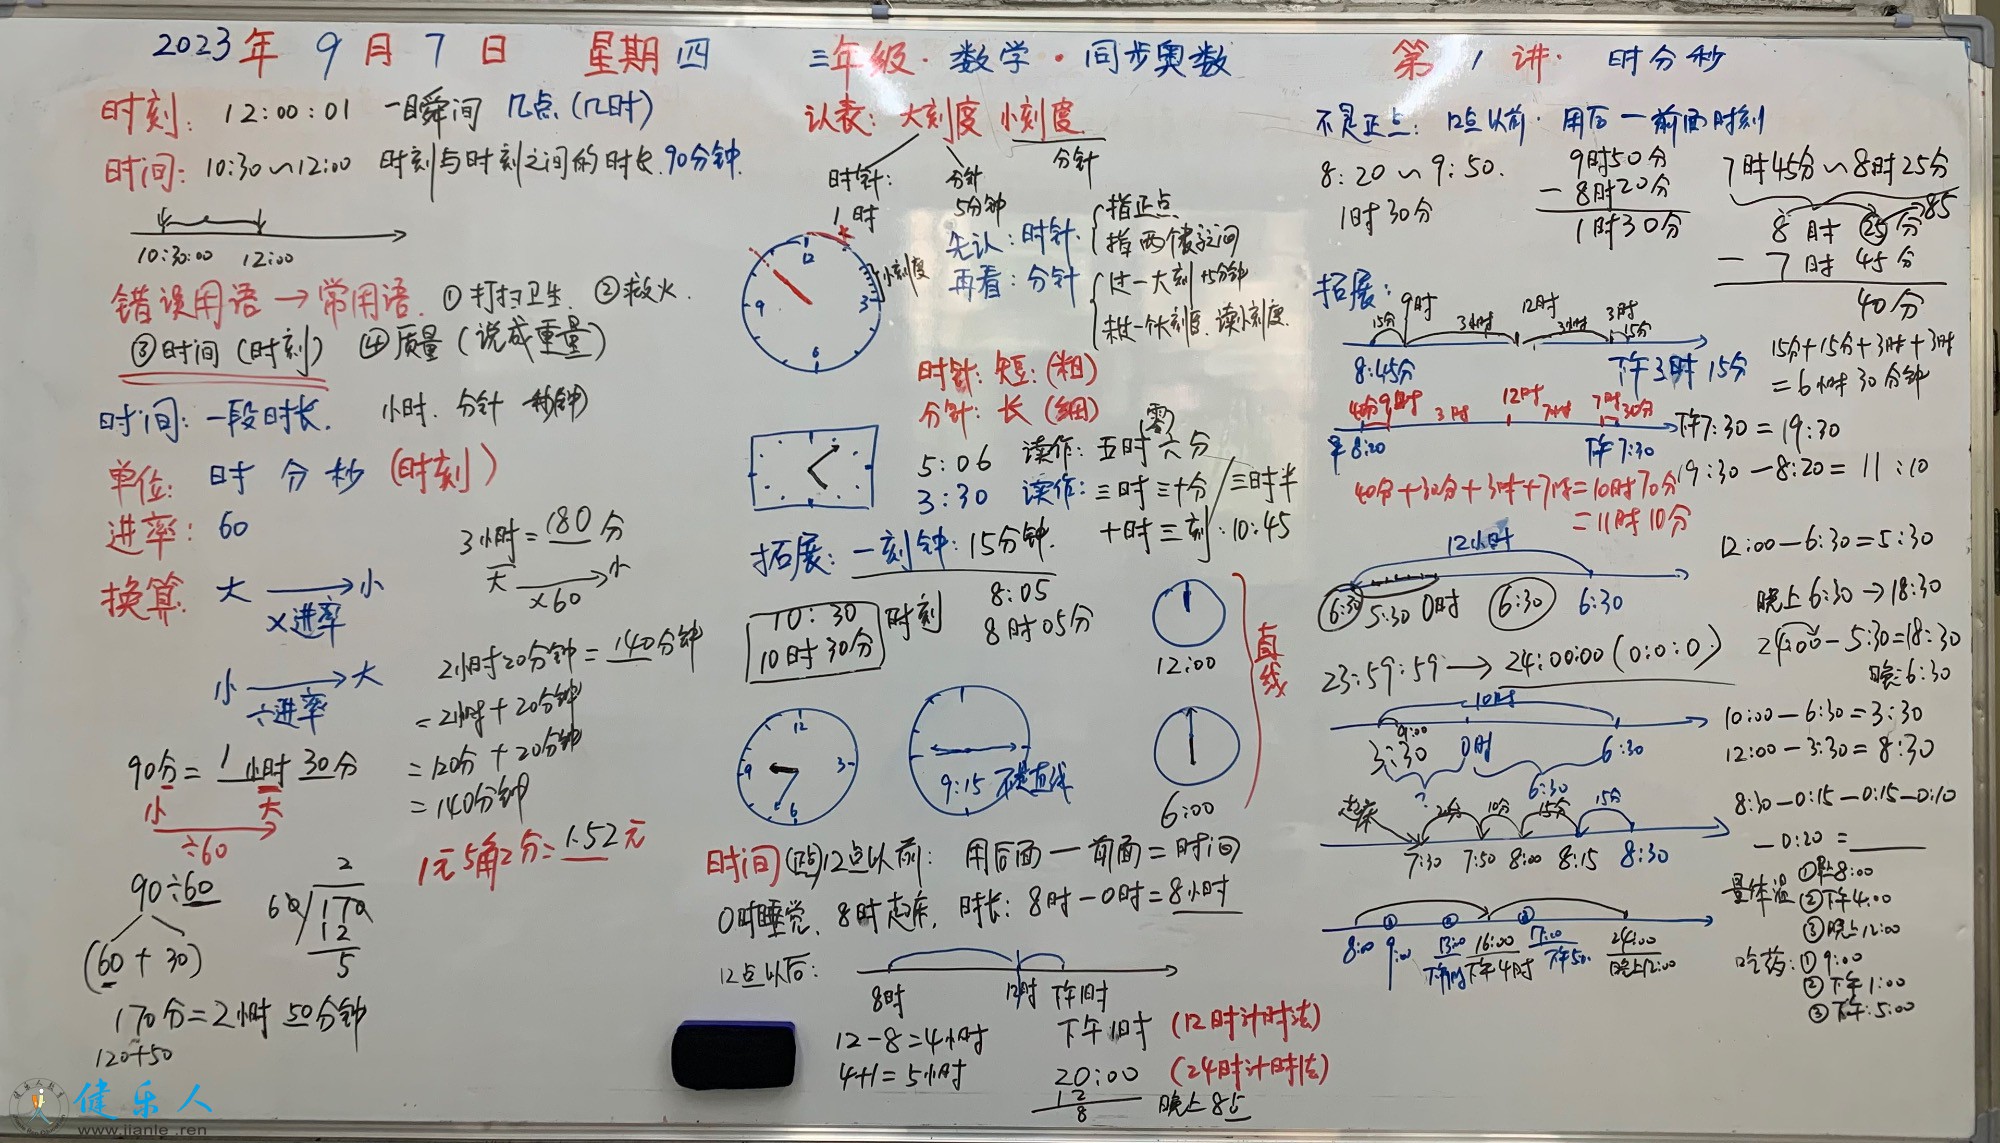 2023年 9月 7日 星期四 三年级·数学·同步奥数 第1讲·时分秒
时刻: 12:00:01 一瞬间 几点(几时)
时间: 10:30~12:00 时刻与时刻之间的时长.90分钟.
10:30:00 12:00
错误用语→常用语. ①打扫卫生. ②救火.
③时间(时刻) ④质量(说成重量)
时间: 一段时长. 小时. 分钟 秒(钟)
单位: 时 分 秒 (时刻)
进率: 60
换算: 大→小
×进率
小→大
÷进率
90分=1小时30分
小 大
÷60
90÷60
(60+30)
170分=2小时50分钟
120+50
2
60 170
12
5
3小时=180分
大→小
×60
2小时20分钟=140分钟
=2小时+20分钟
=120分+20分钟
=140分钟
1元5角2分=1.52元
认表: 大刻度 小刻度
时针: 分针 分针
1时 5分钟
先认: 时针. 指正点
指两个数之间
再看: 分针 过一大刻+5分钟
12
9 3
6
小刻度
时针: 短: (粗)
分针: 长 (细)
零
5:06 读作: 五时六分
3:30 读作: 三时三十分/三时半
十时三刻: 10:45
拓展: 一刻钟: 15分钟.
10:30 时刻 8:05
10时30分 8时05分
12:00
直线
12
9 3
6
9:15 不是直线
6:00
时间 12点以前: 用后面-前面=时间
0时睡觉. 8时起床. 时长: 8时-0时=8小时
12点以后:
8时 12时 下午1时
12-8=4小时 下午1时 (12时计时法)
4+1=5小时 20:00 (24时计时法)
12
8 晚上8点
不是正点: 12点以前. 用后-前面时刻
8:20~9:50.
1时30分
9时50分
-8时20分
1时30分
7时45分~8时25分
85
8时25分
-7时45分
40分
拓展:
15分 9时 3小时 12时 3小时 3时 15分
8:45分 下午3时15分
15分+15分+3时+3时
=6小时30分钟
40分 9时 3时 12时 7时 7时 30分
8:20 下午7:30
下午7:30=19:30
19:30-8:20=11:10
40分+30分+3时+7时=10时70分
=11时10分
12小时
6:30 5:30 0时 6:30 6:30
12:00-6:30=5:30
晚上6:30→18:30
24:00-5:30=18:30
晚:6:30
23:59:59→24:00:00(0:0:0)
10时
9:00
3:30 0时 6:30
? 6:30
10:00-6:30=3:30
12:00-3:30=8:30
起床 20分 10分 15分 15分
7:30 7:50 8:00 8:15 8:30
8:30-0:15-0:15-0:10
-0:20=
量体温 ①早上8:00
②下午4:00
③晚上12:00
吃药: ①9:00
②下午1:00
③下午:5:00
① ② ③
8:00 9:00 13:00 16:00 17:00 24:00
下午1时 下午4时 下午5时 晚上12:00
健乐人
www.jianle.ren